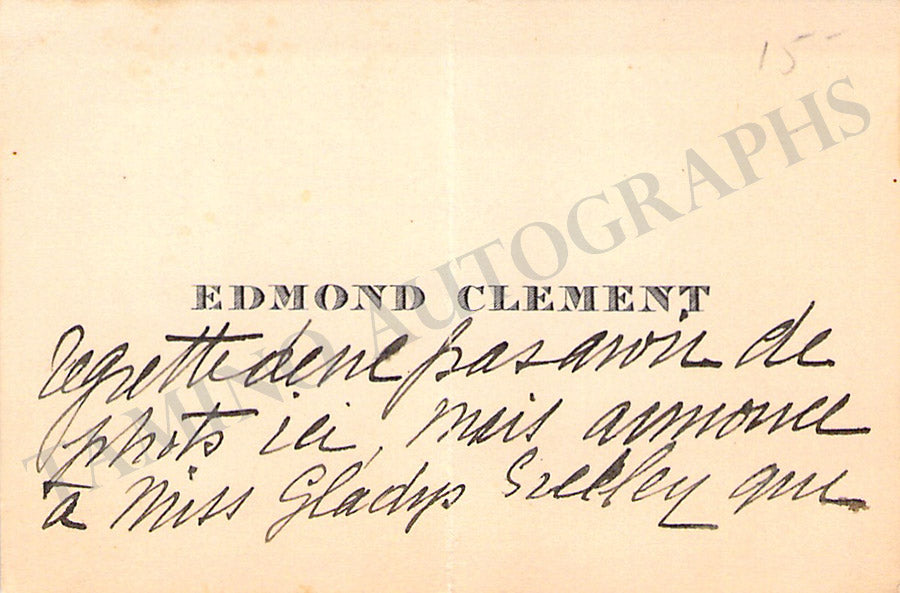 15-
EDMOND CLEMENT
regrette de ne pas avoir de
photo ici, mais annonce
à Miss Gladys que
TAMINO AUTOGRAPHS